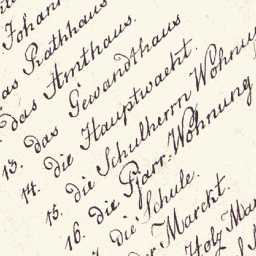 Johann
das Rathhaus
das Amthaus.
13. das Gewandthaus
14. die Hauptwacht.
15. die Schulherrn Wohnu
16. die Pfarr-Wohnung
die Schule.
der Marckt.
Holz Mar